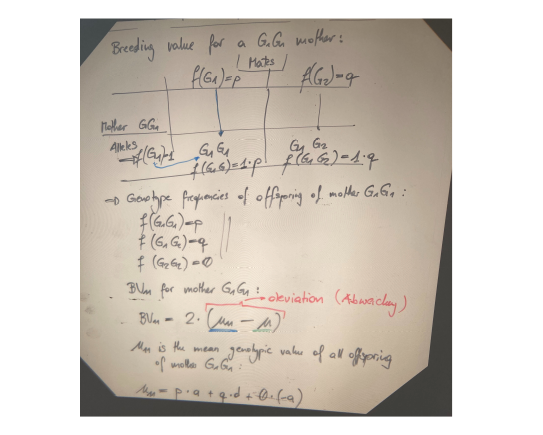 Breeding value for a G₁G₁ mother:
Mates
f(G₁)=p f(G₂)=q
Mother G₁G₁
Alleles G₁ G₁ G₁ G₂
⇒ f(G₁)=1 f(G₁G₁)=1·p f(G₁G₂)=1·q
⇒ Genotype frequencies of offspring of mother G₁G₁:
f(G₁G₁)=p
f(G₁G₂)=q
f(G₂G₂)=0
BV₁₁ for mother G₁G₁:
deviation
BV₁₁ = 2·(μ₁₁ − μ)
μ₁₁ is the mean genotypic value of all offspring
of mother G₁G₁:
μ₁₁ = p·a + q·d + 0·(-a)